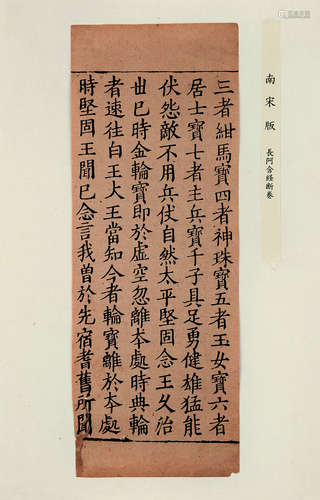 三者紺馬寶四者神珠寶五者玉女寶六者
居士寶七者主兵寶千子具足勇健雄猛能
伏怨敵不用兵仗自然太平堅固念王久治
世已時金輪寶即於虛空忽離本處時典輪
者速往白王大王當知今者輪寶離於本處
時堅固王聞已念言我曾於先宿耆舊所聞
南宋版
長阿含経断巻